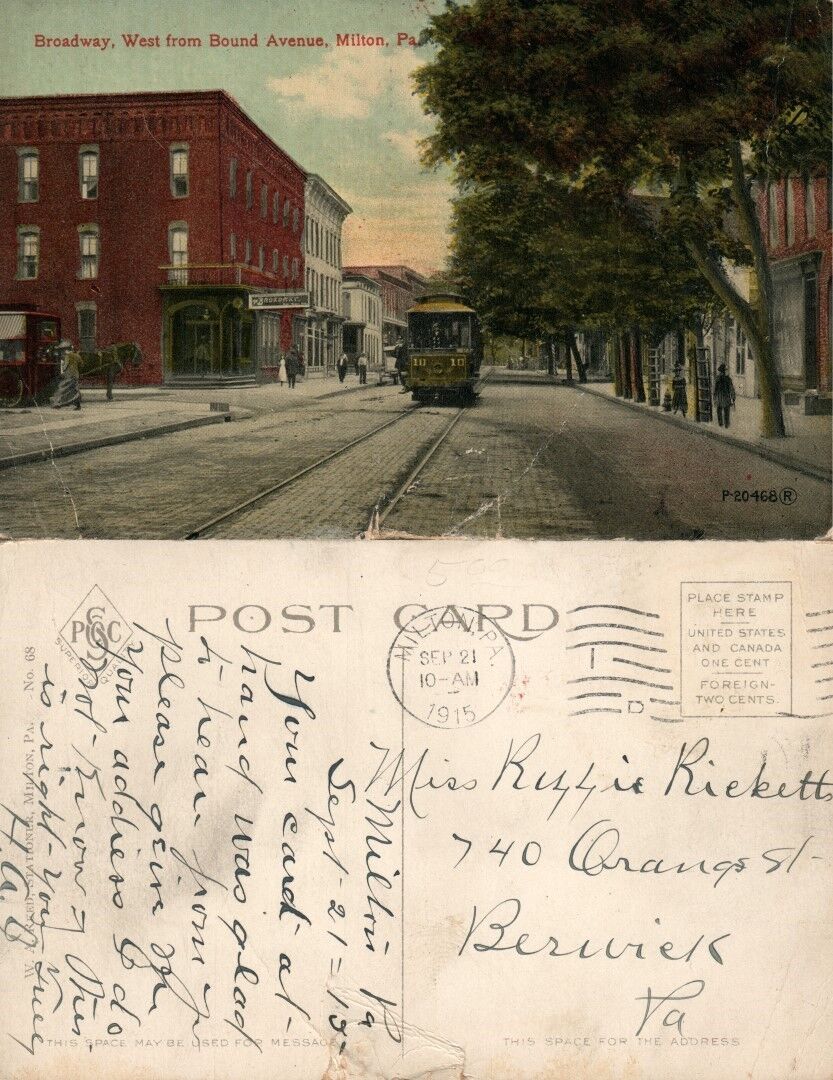 Broadway, West from Bound Avenue, Milton, Pa.
BROADWAY
10 10
P-20468 R
POST CARD
PSC
SUPERIOR QUALITY
MILTON, PA.
SEP 21
10-AM
1915
1
D
PLACE STAMP
HERE
UNITED STATES
AND CANADA
ONE CENT
FOREIGN-
TWO CENTS.
W. A. REED, STATIONER, MILTON, PA. No. 68
Milton Pa
Sept-21-15-
Your card at-
hand was glad
to hear from
please give me
your address I do
not-know if this
is right-
H.A.
Miss Ricketts
740 Orange St-
Berwick
Pa
THIS SPACE MAY BE USED FOR MESSAGE
THIS SPACE FOR THE ADDRESS